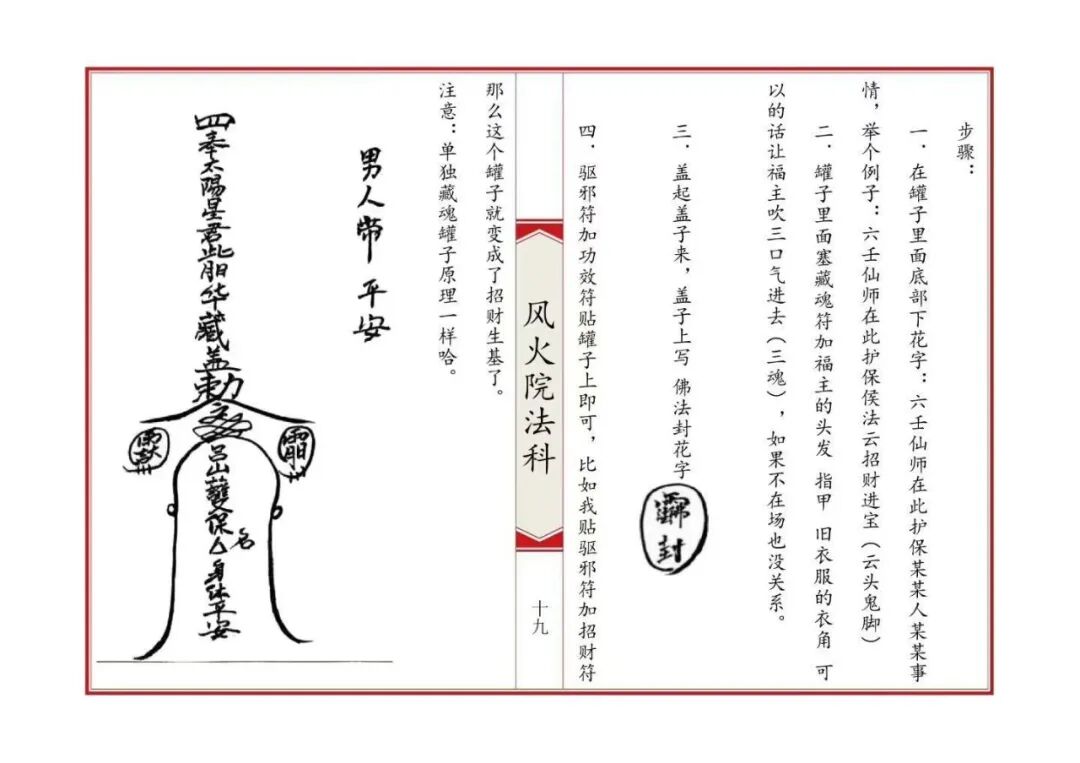 步骤：
一．在罐子里面底部下花字：六壬仙师在此护保某某人某某事
情，举个例子：六壬仙师在此护保侯法云招财进宝（云头鬼脚）
二．罐子里面塞藏魂符加福主的头发 指甲 旧衣服的衣角 可
以的话让福主吹三口气进去（三魂），如果不在场也没关系。
三．盖起盖子来，盖子上写 佛法封花字
封
四．驱邪符加功效符贴罐子上即可，比如我贴驱邪符加招财符
风火院法科
十九
那么这个罐子就变成了招财生基了。
注意：单独藏魂罐子原理一样哈。
男人带 平安
四奉太陽星君
华藏盖
勅
吕山
保△名身体平安